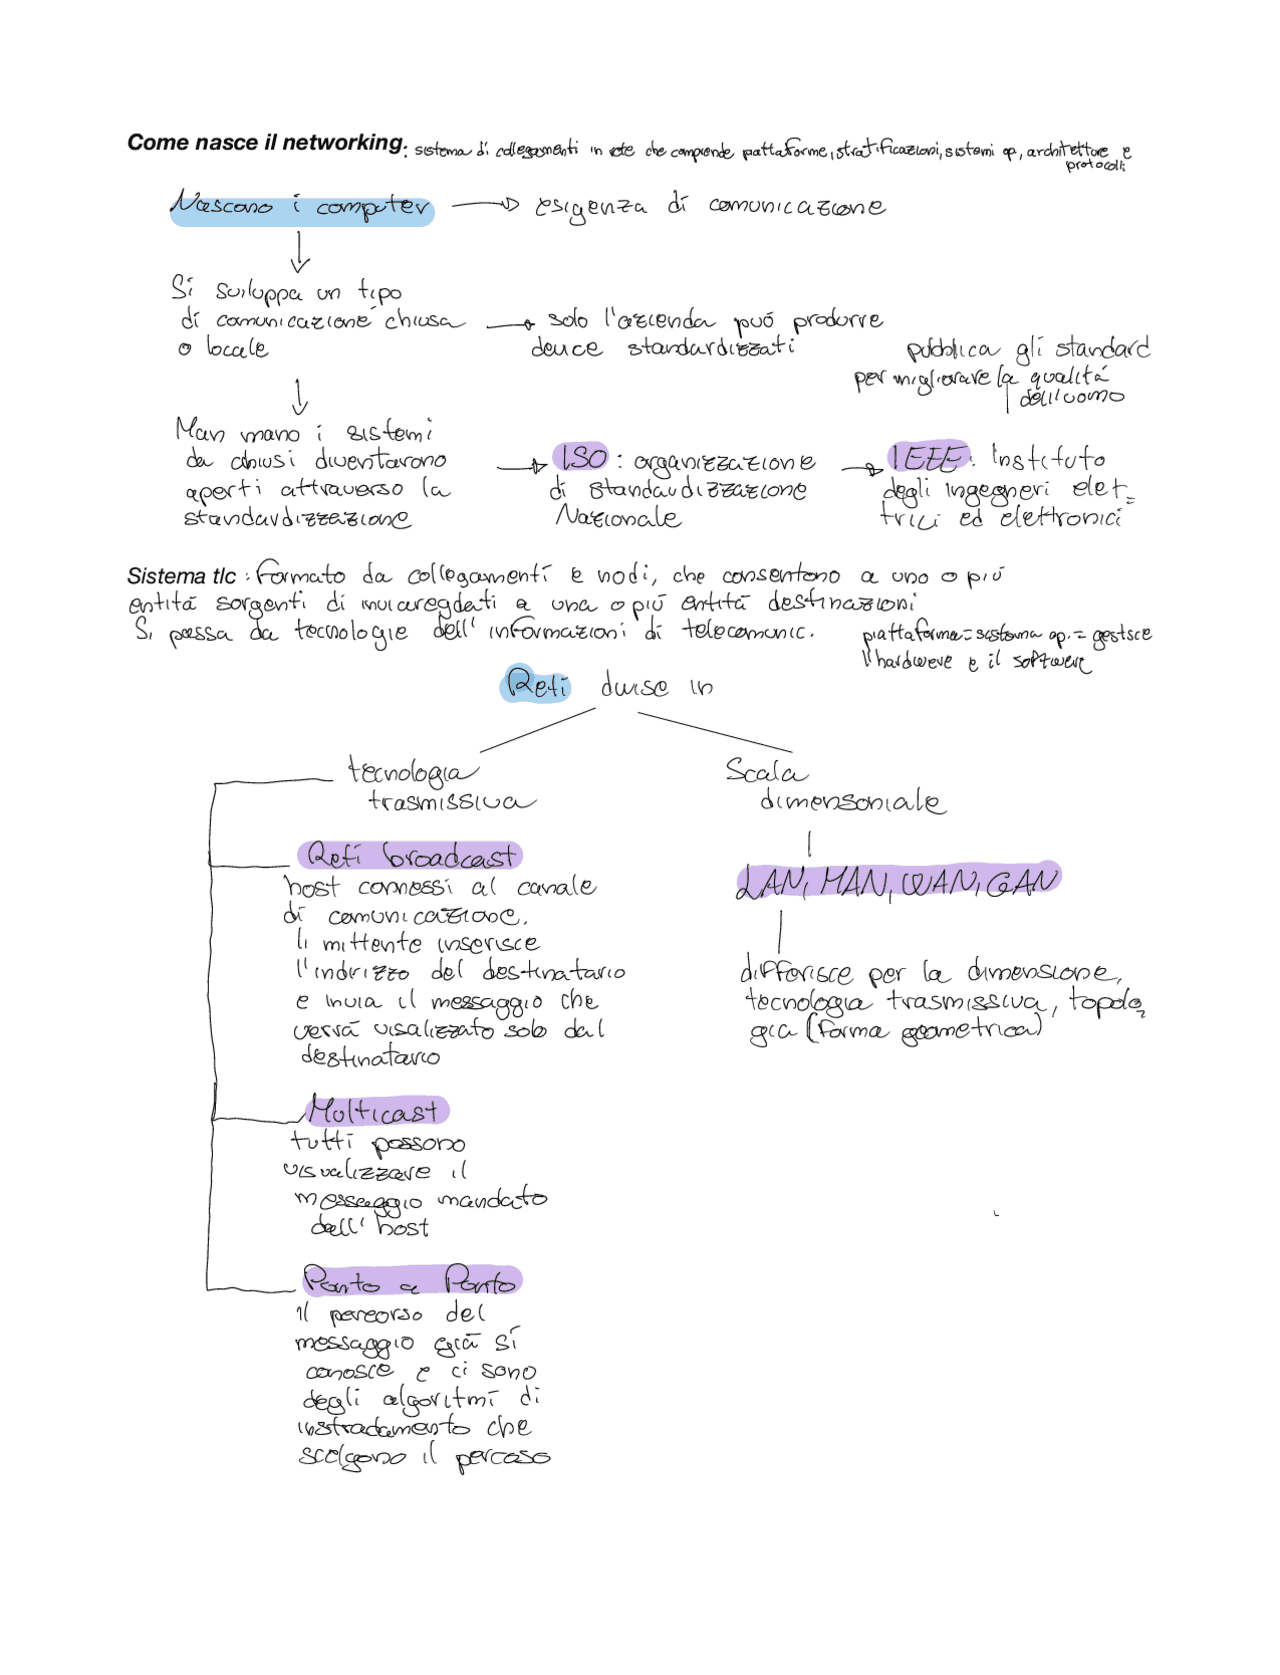 Come nasce il networking: sistema di collegamenti in rete che comprende piattaforme, stratificazioni, sistemi op, architetture e
protocolli
Nascono i computer → esigenza di comunicazione
Si sviluppa un tipo
di comunicazione chiusa → solo l'azienda può produrre
o locale
device standardizzati
pubblica gli standard
per migliorare la qualità
dell'uomo
Man mano i sistemi
da chiusi diventarono
aperti attraverso la
standardizzazione
→ ISO: organizzazione
di standardizzazione
Nazionale
→ IEEE: Instituto
degli ingegneri elet=
trici ed elettronici
Sistema tlc: formato da collegamenti e nodi, che consentono a uno o più
entità sorgenti di inviare dati a una o più entità destinazioni
Si passa da tecnologie dell'informazioni di telecomunic.
piattaforma = sistema op. = gestisce
l'hardwere e il softwere
Reti divise in
tecnologia
trasmissiva
Scala
dimensoniale
Reti broadcast
host connessi al canale
di comunicazione.
Il mittente inserisce
l'indrizzo del destinatario
e invia il messaggio che
verrà visalizzato solo dal
destinatario
LAN, MAN, WAN, GAN
differisce per la dimensione,
tecnologia trasmissiva, topolo=
gia (forma geometrica)
Multicast
tutti possono
visualizzare il
messaggio mandato
dall'host
Punto a Punto
il percorso del
messaggio già si
conosce e ci sono
degli algoritmi di
instradamento che
scelgono il percoso